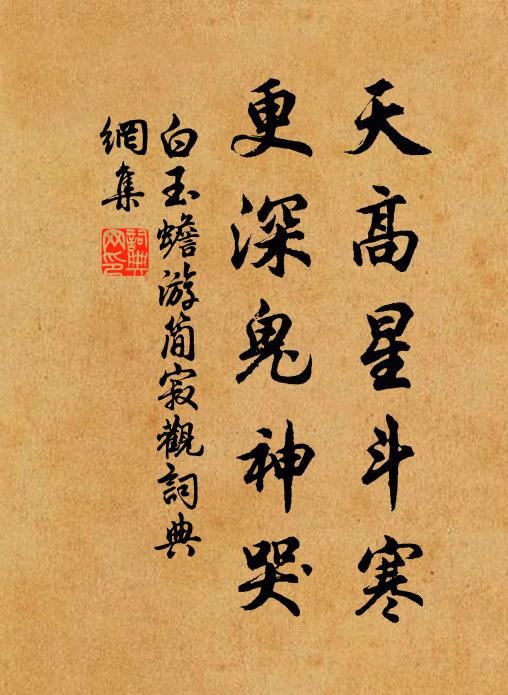 天高星斗寒
更深鬼神哭
白玉蟾游简寂觀詞典
網集
詞典網印